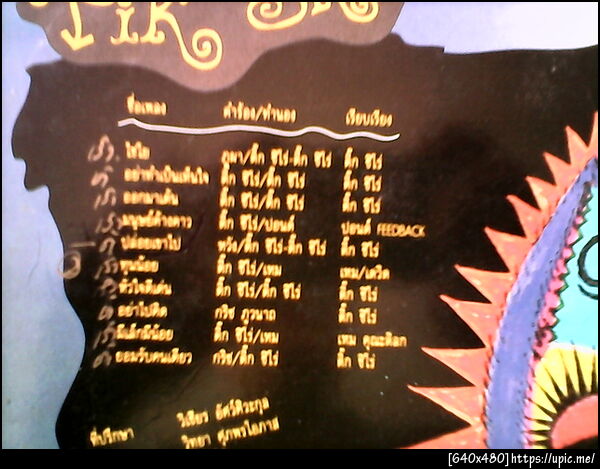 ชื่อเพลง คำร้อง/ทำนอง เรียบเรียง
ไฮโซ ภูผา/ติ๊ก ชีโร่-ติ๊ก ชีโร่ ติ๊ก ชีโร่
อย่าทำเป็นเห็นใจ ติ๊ก ชีโร่/ติ๊ก ชีโร่ ติ๊ก ชีโร่
ออกมาเต้น ติ๊ก ชีโร่/ติ๊ก ชีโร่ ติ๊ก ชีโร่
มนุษย์ค้างคาว ติ๊ก ชีโร่/ปอนด์ ปอนด์ FEEDBACK
ปล่อยเขาไป ติ๊ก ชีโร่-ติ๊ก ชีโร่ ติ๊ก ชีโร่
ทูนน้อย ติ๊ก ชีโร่/เหม เหม/เดวิด
หัวใจดีเด่น ติ๊ก ชีโร่/ติ๊ก ชีโร่ ติ๊ก ชีโร่
อย่าไปคิด กริช ติ๊ก ชีโร่
มีเล็กมีน้อย ติ๊ก ชีโร่/เหม เหม
ยอมรับคนเดียว กริช/ติ๊ก ชีโร่ ติ๊ก ชีโร่
ที่ปรึกษา วิเชียร อัศว์ศิวะกุล
วิทยา ศุภพรโอภาส
[640x480]https://upic.me/